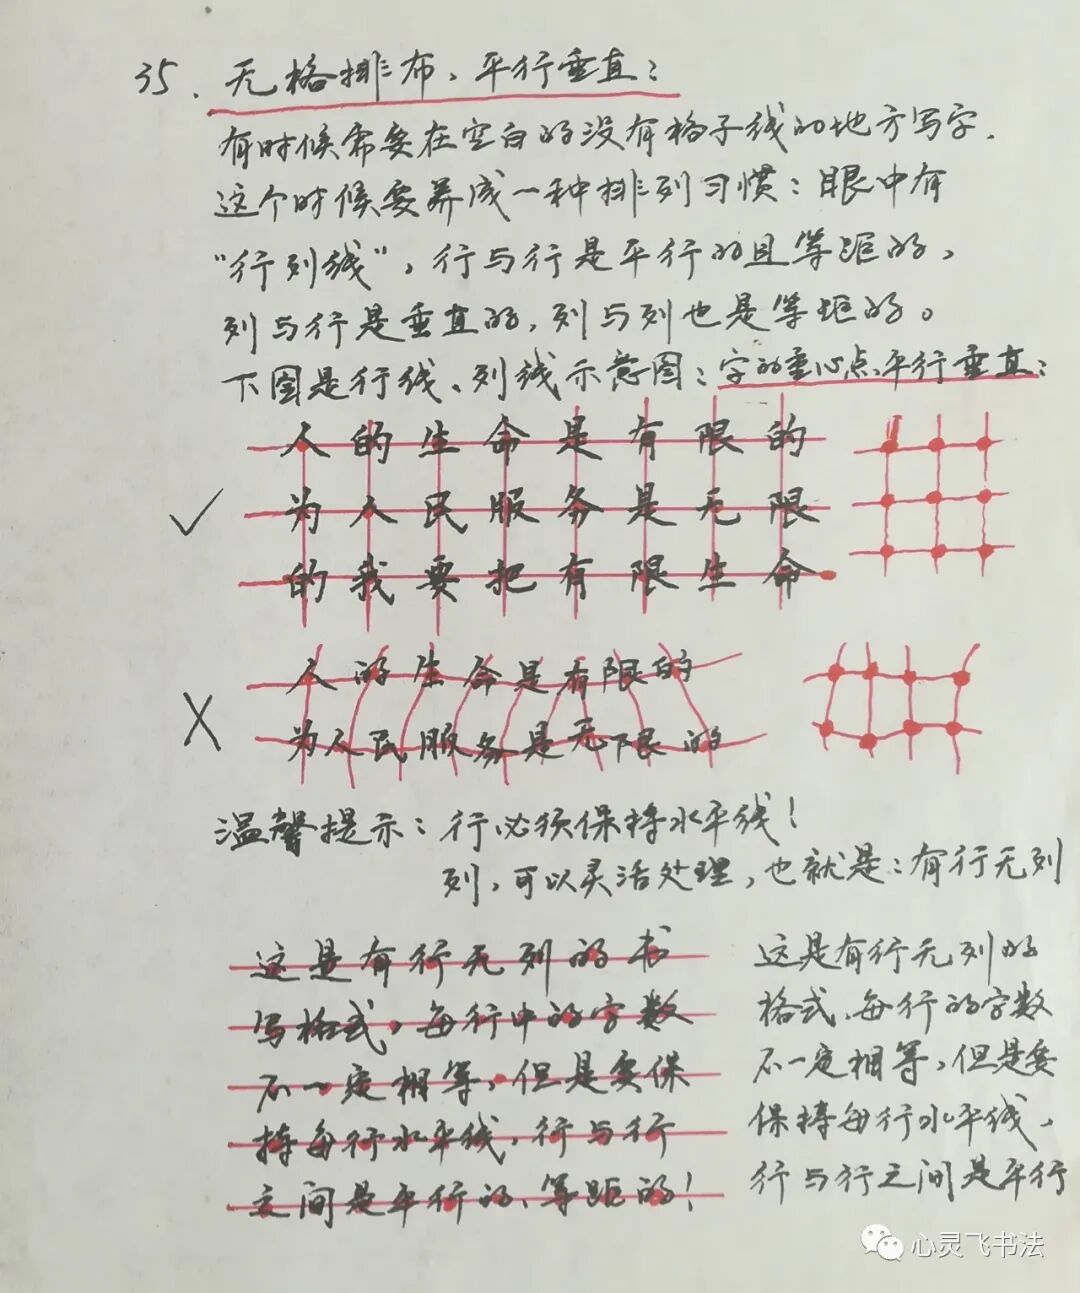 35、无格排布、平行垂直：
有时候需要在空白的没有格子线的地方写字.
这个时候要养成一种排列习惯：眼中有
“行列线”，行与行是平行的且等距的，
列与行是垂直的，列与列也是等距的。
下图是行线、列线示意图：字的重心点平行垂直：
人的生命是有限的
为人民服务是无限
的我要把有限生命
✓
人的生命是有限的
为人民服务是无下限的
X
温馨提示：行必须保持水平线！
列，可以灵活处理，也就是：有行无列
这是有行无列的书
写格式，每行中的字数
不一定相等，但是要保
持每行水平线，行与行
之间是平行的、等距的！
这是有行无列的
格式、每行的字数
不一定相等，但是要
保持每行水平线、
行与行之间是平行
心灵飞书法